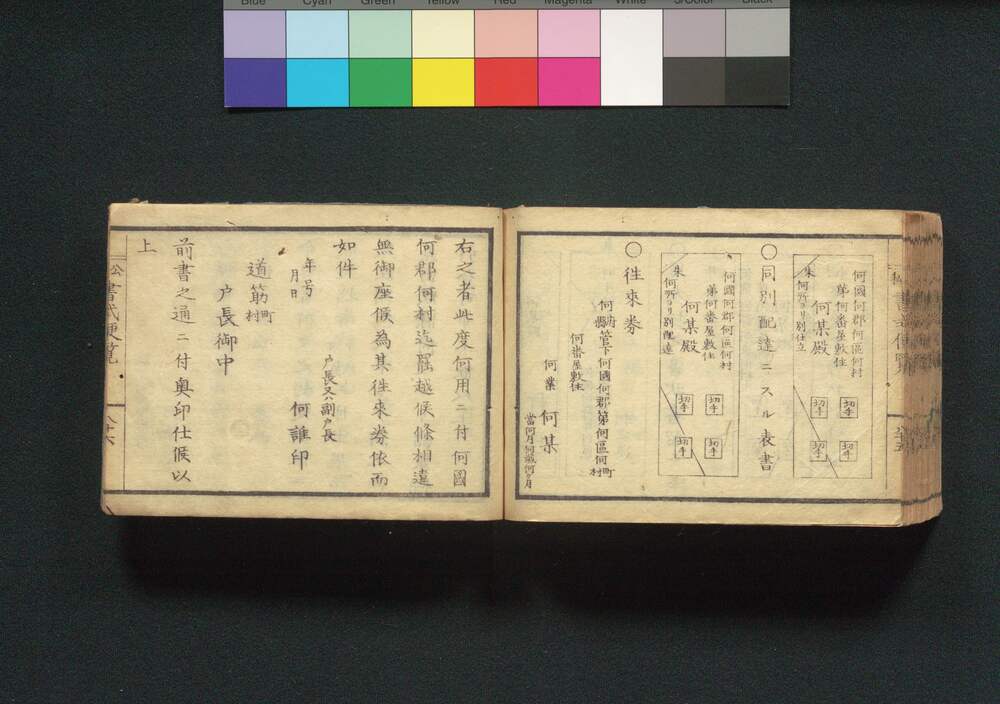 Blue Cyan Green Yellow Red Magenta White 3/Color Black
何國何郡何區何村
第何番屋敷住
何某殿
朱何所ヨリ別仕立
切手 切手
切手 切手
○同別配達ニスル表書
何國何郡何區何村
第何番屋敷住
何某殿
朱何所ヨリ別配達
切手 切手
切手 切手
○徃來券
管下何國何郡第何區何町村
何番屋敷住
何業 何某
當何月何歳何ヶ月
右之者此度何用ニ付何國
何郡何村迄罷越候條相違
無御座候為其徃來券依而
如件
年号
月日
戸長又ハ副戸長
何誰印
道筋町村
戸長御中
前書之通ニ付奥印仕候以
上
公書式便覧
八十六